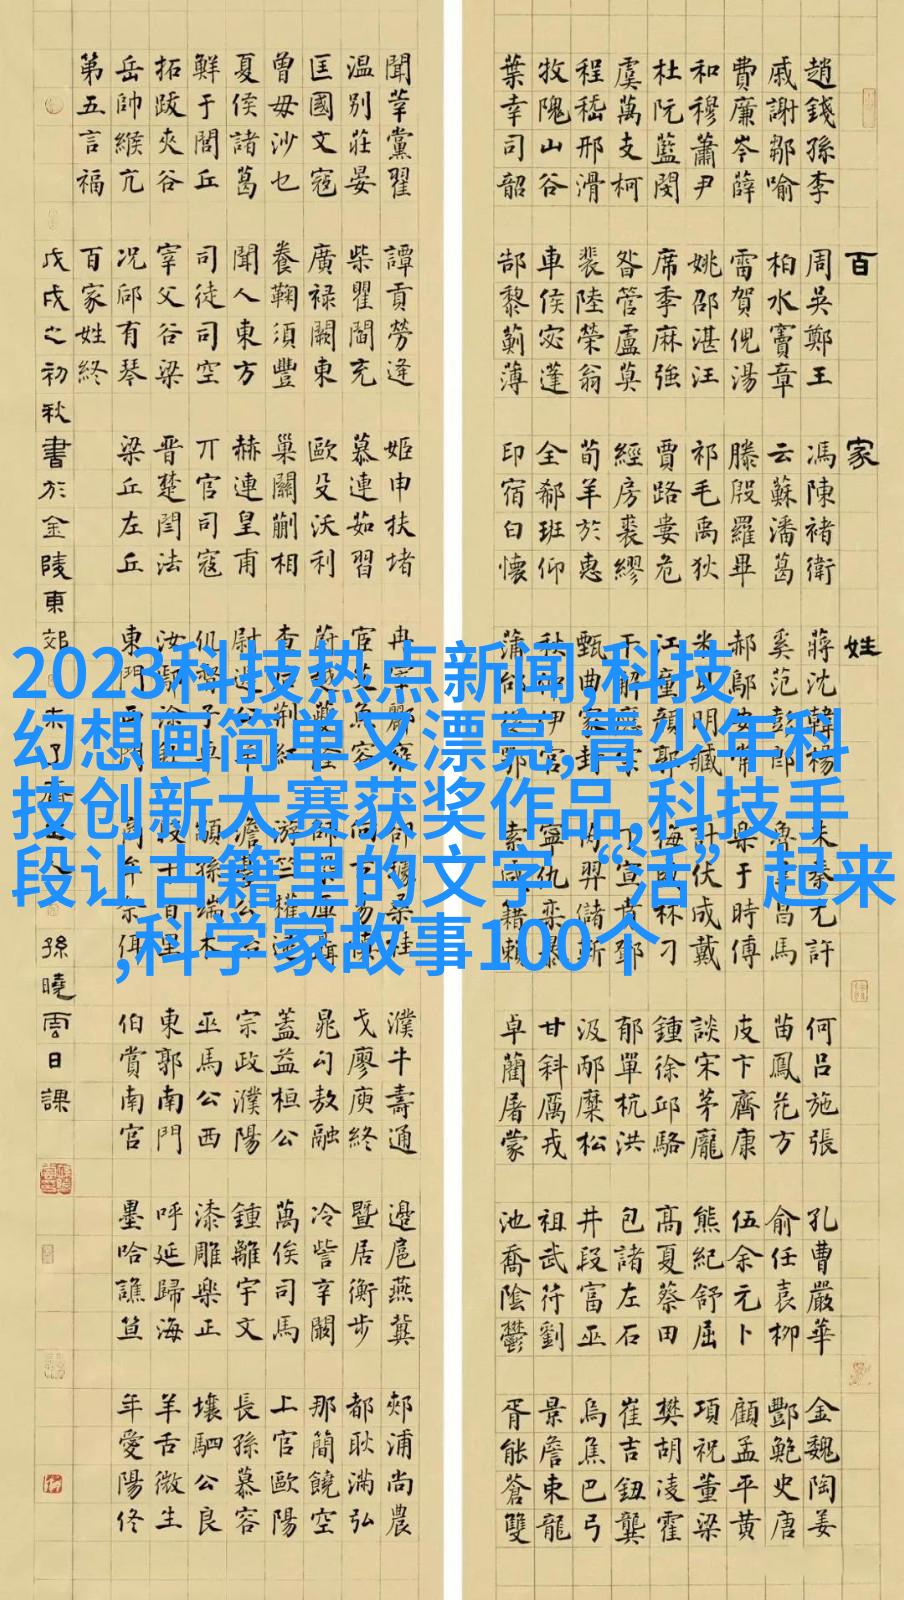 百家姓
趙錢孫李 周吳鄭王 馮陳褚衛 蔣沈韓楊 朱秦尤許 何呂施張 孔曹嚴華 金魏陶姜
戚謝鄒喻 柏水竇章 云蘇潘葛 奚范彭郎 魯韋昌馬 苗鳳花方 俞任袁柳 酆鮑史唐
費廉岑薛 雷賀倪湯 滕殷羅畢 郝鄔安常 樂于時傅 皮卞齊康 伍余元卜 顧孟平黃
和穆蕭尹 姚邵湛汪 祁毛禹狄 米明臧 計伏成戴 談宋茅龐 熊紀舒屈 項祝董梁
杜阮藍閔 席季麻強 賈路婁危 江童顏郭 梅林刁 鍾徐邱駱 高夏蔡田 樊胡凌霍
虞萬支柯 昝管盧莫 經房裘繆 干解應宗 丁宣賁鄧 郁單杭洪 包諸左石 崔吉鈕龔
程嵇邢滑 裴陸榮翁 荀羊於惠 甄曲家封 芮羿儲靳 汲邴糜松 井段富巫 烏焦巴弓
牧隗山谷 車侯宓蓬 全郗班仰 秋仲伊宮 寧仇欒暴 甘斜厲戎 祖武符劉 景詹束龍
葉幸司韶 郜黎薊薄 印宿白懷 蒲邰鄂 索咸籍賴 卓藺屠蒙 池喬陰鬱 胥能蒼雙
聞莘黨翟 譚貢勞逄 姬申扶堵 冉宰酈雍 郤璩桑桂 濮牛壽通 邊扈燕冀 郟浦尚農
温別莊晏 柴瞿閻充 慕連茹習 宦艾魚容 向古易慎 戈廖庾終 暨居衡步 都耿滿弘
匡國文寇 廣祿闕東 歐殳沃利 蔚越夔隆 師鞏厙聶 晁勾敖融 冷訾辛闞 那簡饒空
曾毋沙乜 養鞠須豐 巢關蒯相 查荊紅 游竺權逯 蓋益桓公 萬俟司馬 上官歐陽
夏侯諸葛 聞人東方 赫連皇甫 尉遲公羊 澹臺公冶 宗政濮陽 鍾離宇文 長孫慕容
鮮于閭丘 司徒司空 丌官司寇 仉督子車 顓孫端木 巫馬公西 漆雕樂正 壤駟公良
拓跋夾谷 宰父谷梁 晉楚閆法 汝鄢涂欽 段干百里 東郭南門 呼延歸海 羊舌微生
岳帥緱亢 況郈有琴 梁丘左丘 東門西門 商牟佘佴 伯賞南宮 墨哈譙笪 年愛陽佟
第五言福 百家姓終
戊戌之初秋書於金陵東郊 孫曉雲日課
2023科技热点新闻,科技
幻想画简单又漂亮,青少年科
技创新大赛获奖作品,科技手
段让古籍里的文字“活”起来
,科学家故事100个